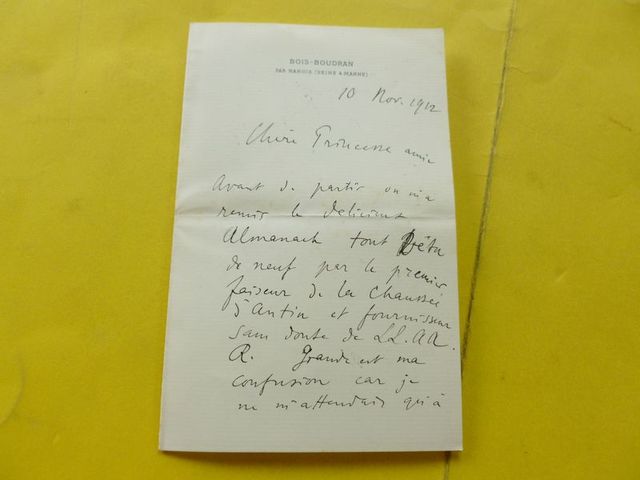 BOIS-BOUDRAN
PAR NANGIS (SEINE & MARNE)
10 Nov. 1912
Chère Princesse amie
Avant de partir on m'a
remis le délicieux
Almanach tout vêtu
de neuf par le premier
faiseur de la Chaussée
d'Antin et fournisseur
sans doute de LL.AA.
R. Grande est ma
confusion car je
ne m'attendais qu'à